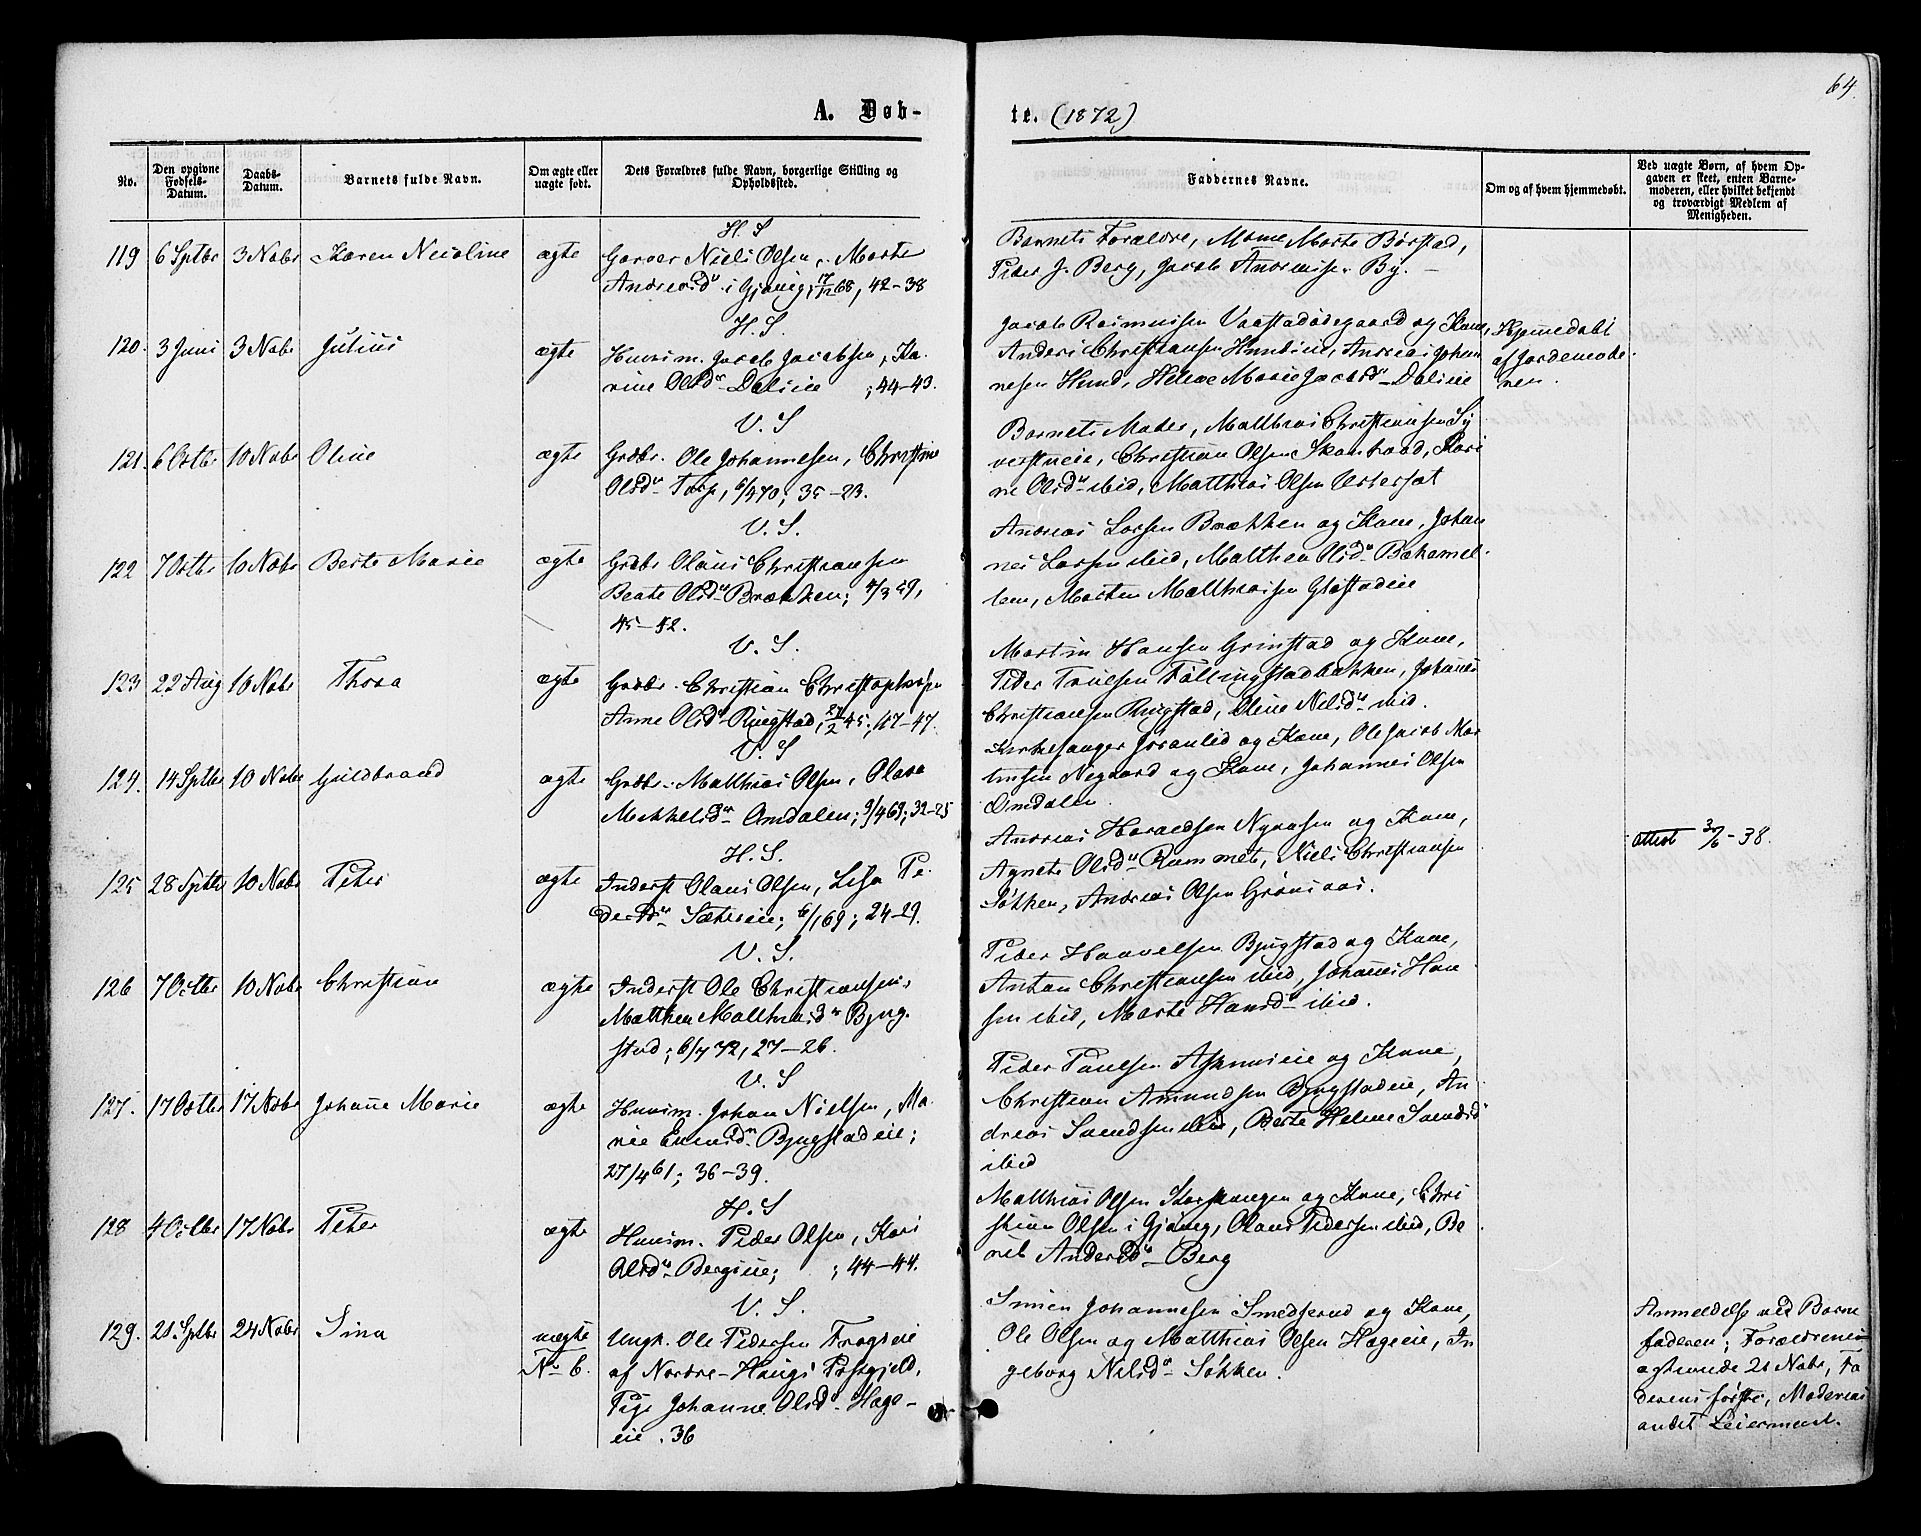 64.
A. Døb-
te. (1872)
No.
Den opgivne Fødsels-Datum.
Daabs-Datum.
Barnets fulde Navn.
Om ægte eller uægte født.
Dets Forældres fulde Navn, borgerlige Stilling og Opholdssted.
Faddernes Navne.
Om og af hvem hjemmedøbt.
Ved uægte Børn, af hvem Op-
gaven er skeet, enten Barne-
moderen, eller hvilket bekjendt
og troværdigt Medlem af
Menigheden.
H. S
119 6 Sptbr 3 Nobr Karen Nicoline ægte Garver Niels Olsen, Marte
Andersd. i Gjøvig, 17/12 68, 42-38
Barnets Forældre, Marte Børstad,
Peder J. Berg, Jacob By.
H. S.
120. 3 Juni 3 Nobr Julius ægte Huusm. Jacob Jacobsen, Ka-
rine Olsdr Dalseie ; 44-43.
Jacob Rasmussen og Kone,
Anders Christiansen Hundseie, Andreas Johan
nesen Hund, Helene Marie Jacobsdr Dalseie
Hjemmedøbt
af Jordemode-
ren.
V. S
121. 6 Octbr 10 Nobr Oline ægte Grdbr. Ole Johannesen, Christine
Olsdr Torp, 6/4 70; 35-23.
Barnets Moder, Matthias Christiansen Sy
verstueie, Christian Olsen Kari
ne Olsdr ibid, Matthias Olsen
V. S.
122 7 Octbr 10 Nobr Berte Marie ægte Grdbr Olaus Christiansen
Beate Olsdr Brækken; 4/3 59,
45-42.
Andreas Larsen Brækken og Kone, Johan
nes Larsen ibid, Matthea Olsdr
Morten Matthiassen Glæstadeie
V. S.
123 22 Aug 10 Nobr Thora ægte Grdbr. Christian Christophersen
Anne Olsdr Ringstad, 45; 47-47.
Martin Hansen Grimstad og Kone,
Peder Truelsen Fallingstadbakken, Johannes
Christiansen Ringstad, Oline Nilsdr ibid.
V. S
124. 14 Sptbr 10 Nobr Guldbrand ægte Grdbr. Matthias Olsen, Olava
Mikkelsdr Omdalen; 9/4 69; 32-25
Kirkesanger og Kone, Ole Jacob Mar
tinsen Negaard og Kone, Johannes Olsen
Omdalen.
H. S.
125 28 Sptbr 10 Nobr Peter ægte Inderst Olaus Olsen, Lisa Pe-
dersdr Sætreeie; 6/1 69; 24-29.
Andreas Haraldsen og Kone,
Agnete Olsdr Rammet, Niels Christiansen
Søkken, Andreas Olsen Grønaas.
attest 3/6 - 38.
V. S.
126 7 Octbr 10 Nobr Christian ægte Inderst Ole Christiansen,
Matthea Matthiasdr Bjug-
stad; 6/7 72, 27-26.
Peder Haavelsen Bjugstad og Kone,
Anton Christiansen ibid, Johannes Han
sen ibid, Marte Hansdr ibid.
V. S
127. 17 Octbr 17 Nobr Johanne Marie ægte Huusm. Johan Nielsen, Ma-
rie Bjugstadeie;
27/4 61; 36-39.
Peder Paulsen og Kone,
Christian Amundsen Bjugstadeie, An
dreas ibid, Berte Helene
ibid
H. S
128 4 Octbr 17 Nobr Peter ægte Huusm. Peder Olsen, Kari
Olsdr Bergseie; ; 44-44.
Matthias Olsen og Kone, Chri
stian Olsen i Gjøvig, Olaus Pedersen ibid, Be
rit Andersdr Berg
V. S.
129. 21 Sptbr 24 Nobr Sina uægte
No 6.
Ungk. Ole Pedersen
af Nordre-Haugs Pstgjeld,
Pige Johanne Olsdr Hage-
eie. 36
Simen Johannesen Smedserud og Kone,
Ole Olsen og Matthias Olsen Hageeie, In
geborg Nilsdr Søkken.
Anmeldelse ved Barne
faderen; Forældrene
21 Nobr, Fa
derens første, Moderens
andet Leiermaal.